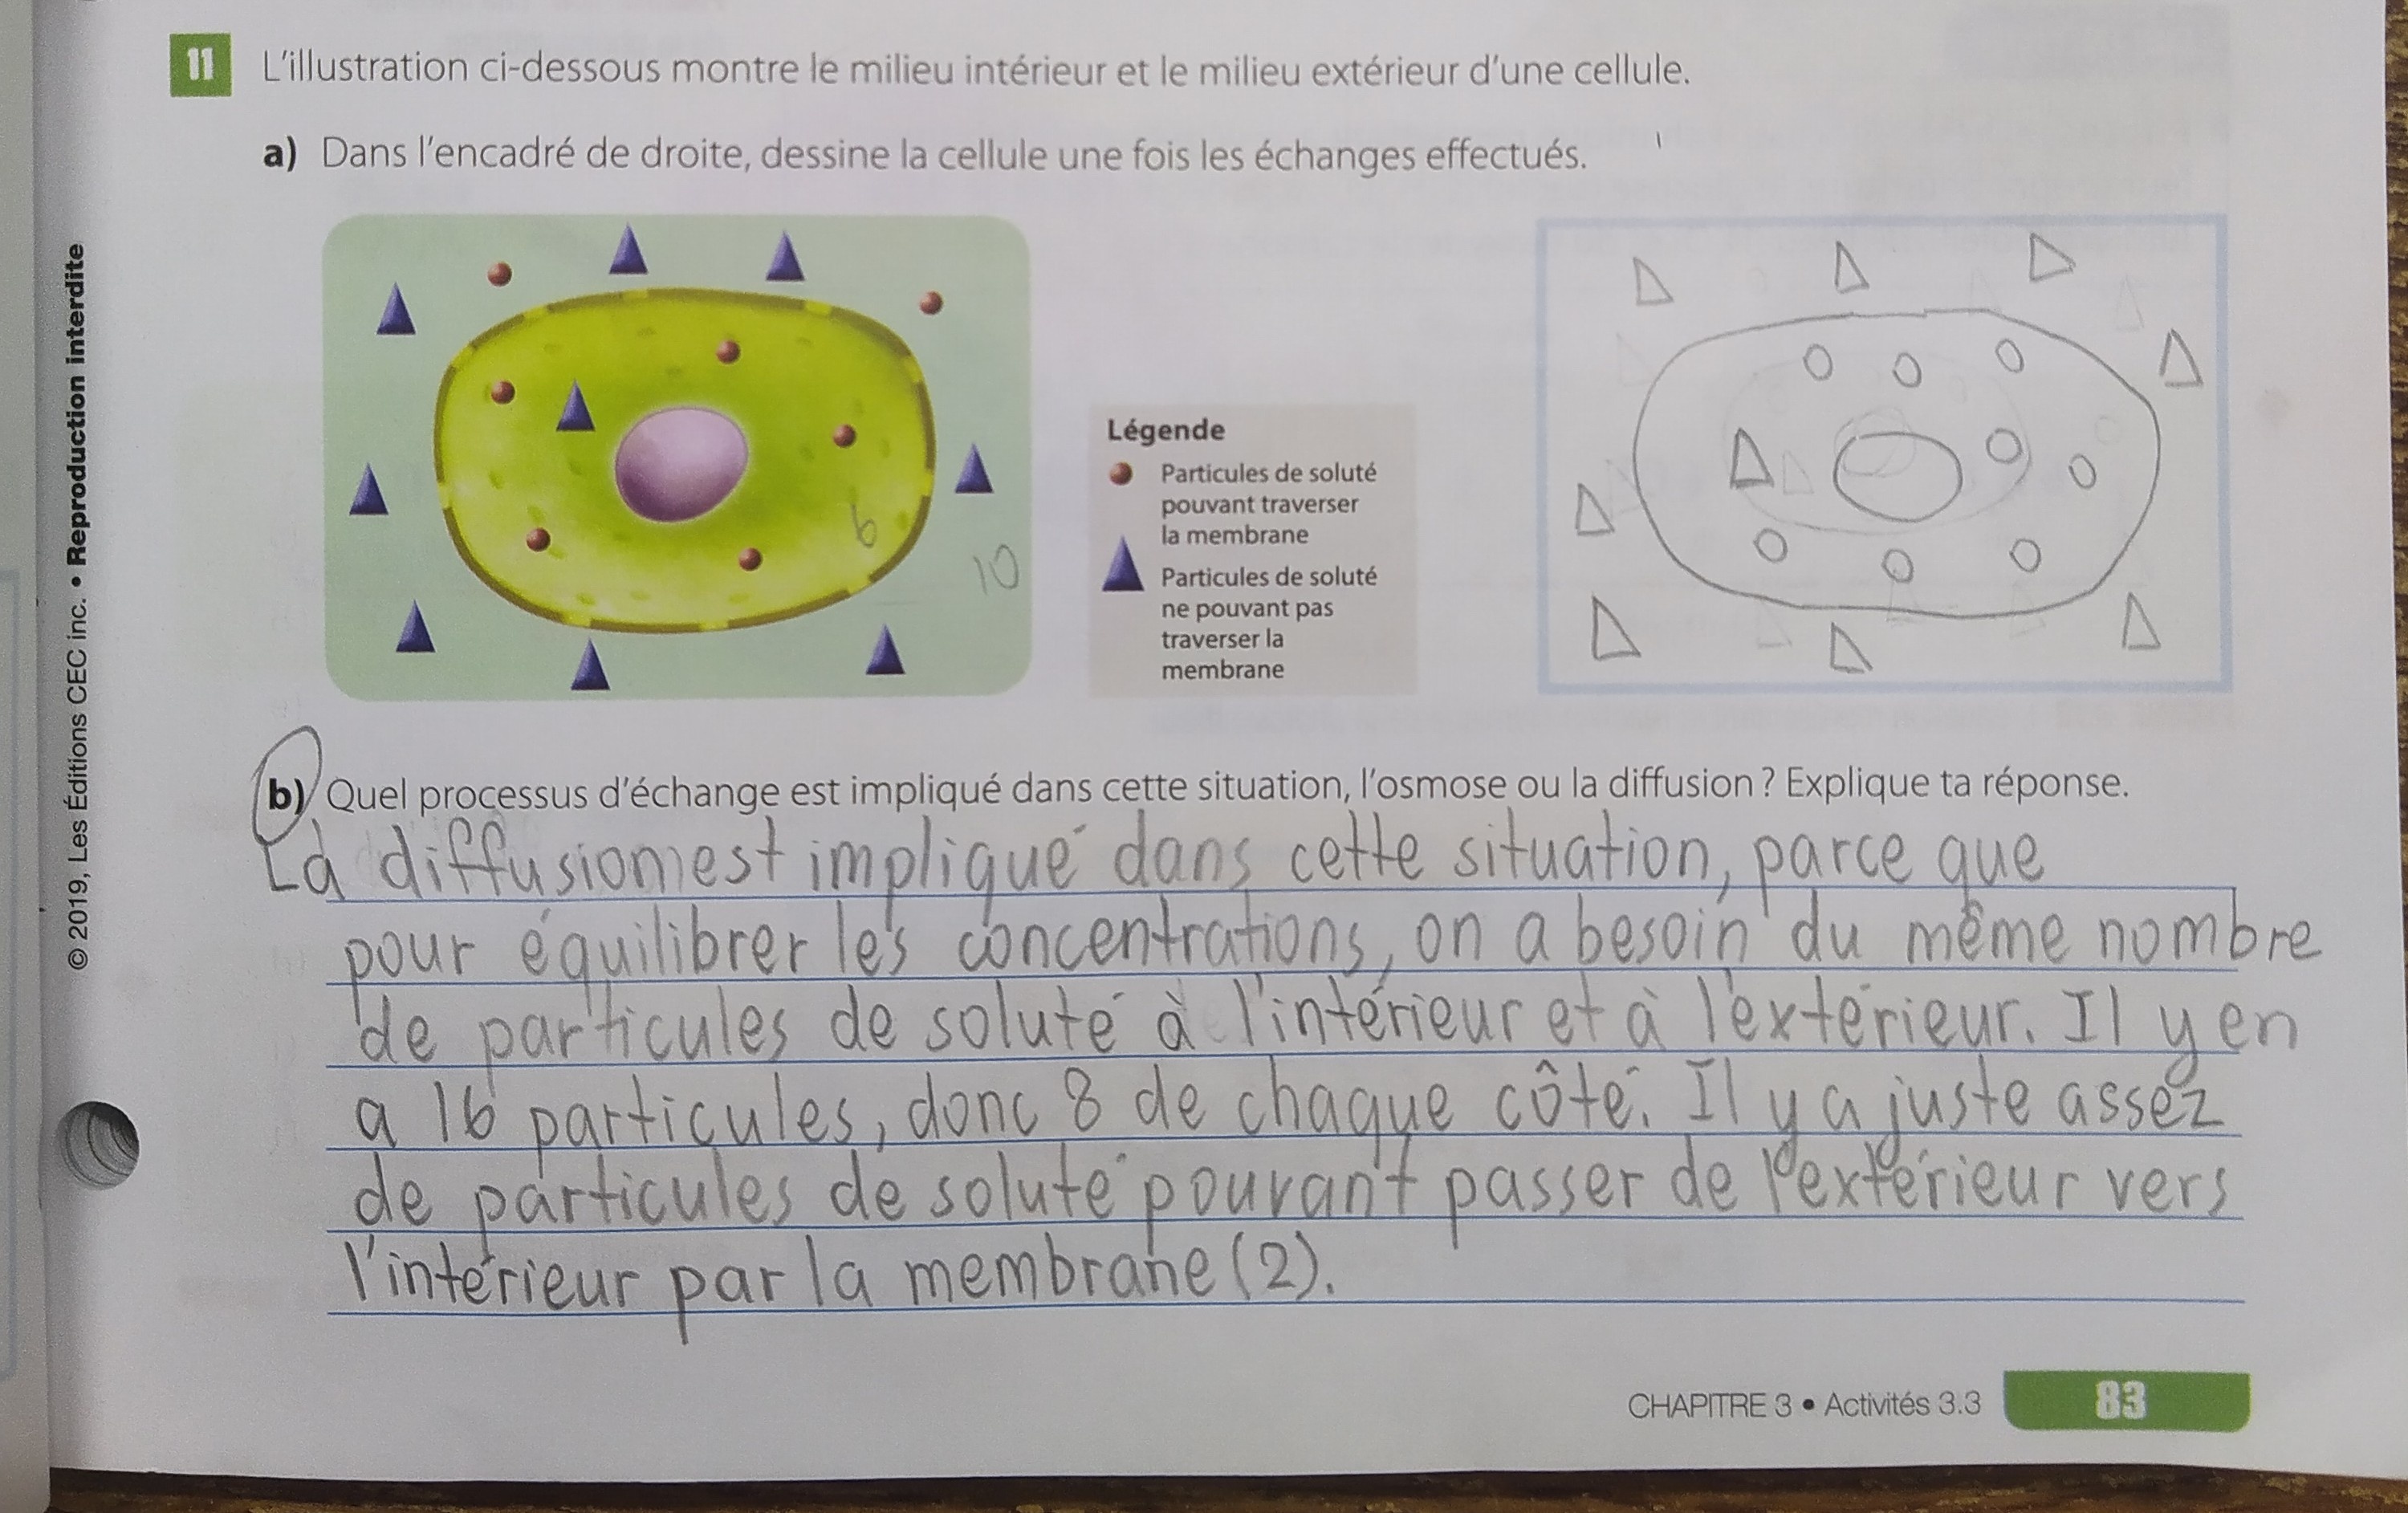 11 L'illustration ci-dessous montre le milieu intérieur et le milieu extérieur d'une cellule.
a) Dans l'encadré de droite, dessine la cellule une fois les échanges effectués.
6
10
Légende
Particules de soluté
pouvant traverser
la membrane
Particules de soluté
ne pouvant pas
traverser la
membrane
b) Quel processus d'échange est impliqué dans cette situation, l'osmose ou la diffusion ? Explique ta réponse.
La diffusion est impliqué dans cette situation, parce que
pour équilibrer les concentrations, on a besoin du même nombre
de particules de soluté à l'intérieur et à l'extérieur. Il y en
a 16 particules, donc 8 de chaque côté. Il y a juste assez
de particules de soluté pouvant passer de l'extérieur vers
l'intérieur par la membrane (2).
CHAPITRE 3 • Activités 3.3 83
© 2019, Les Éditions CEC inc. • Reproduction interdite